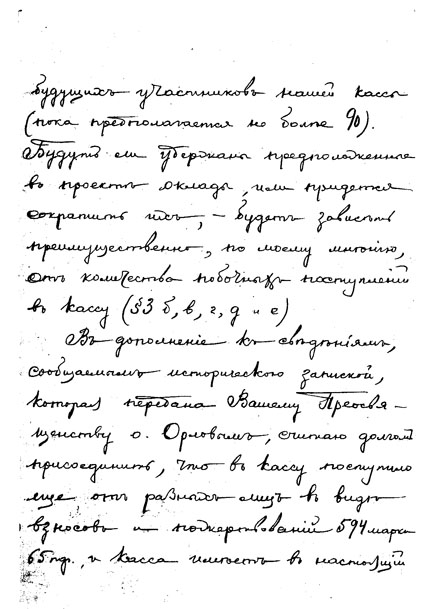 будущихъ участниковъ нашей кассы
(пока предполагается не болѣе 90).
Будутъ ли удержаны предположенные
въ проектѣ оклады, или придется
сократить ихъ, – будетъ зависѣть
преимущественно, по моему мнѣнію,
отъ количества побочныхъ поступленій
въ кассу (§3 б, в, г, д и е)
Въ дополненіе къ свѣдѣніямъ,
сообщаемымъ исторической запиской,
которая передана Вашему Преосвя-
щенству о. Орловымъ, считаю долгомъ
присоединить, что въ кассу поступило
еще отъ разныхъ лицъ въ видѣ
взносовъ и пожертвованій 594 марки
65 пф., и касса имѣетъ въ настоящій